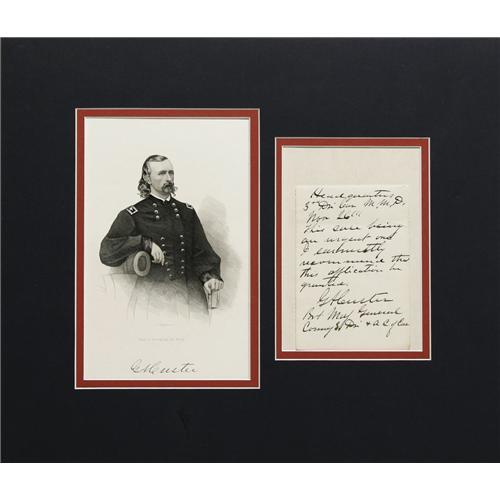 GACuster
Headquarters
3rd Div Cav M.M.D.
Nov 26th
This case being
an urgent one
I earnestly
recommend that
this application be
granted.
GACuster
Bvt Maj General
Comdg 3d Div